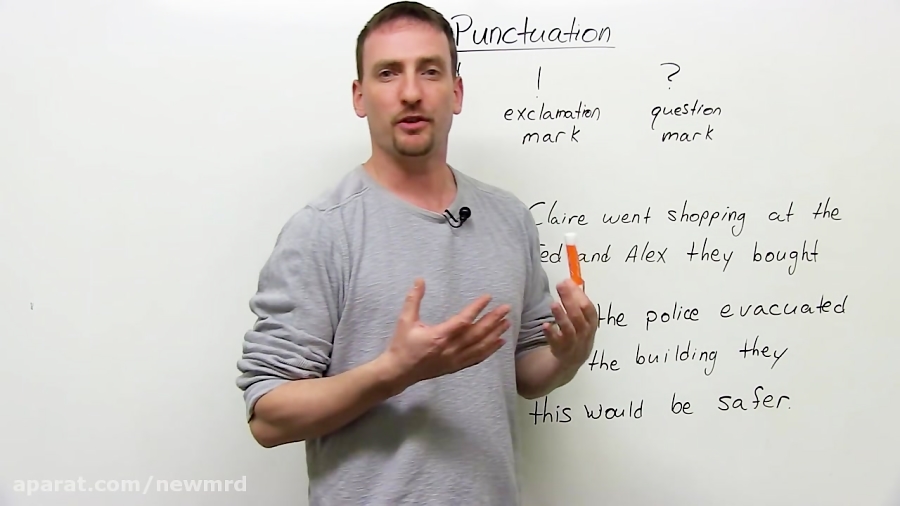 Punctuation
! ?
exclamation question
mark mark
Claire went shopping at the
and Alex they bought
the police evacuated
the building they
this would be safer.
aparat.com/newmrd